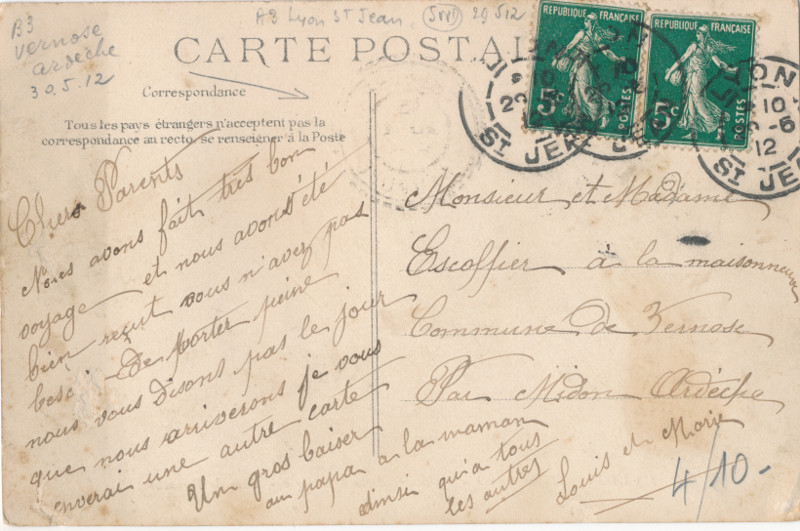 B3
Vernose
ardèche
30.5.12
A3 Lyon St Jean 29 5 12
CARTE POSTALE
Correspondance
Tous les pays étrangers n'acceptent pas la
correspondance au recto, se renseigner à la Poste
REPUBLIQUE FRANÇAISE
5c
POSTES
REPUBLIQUE FRANÇAISE
5c
POSTES
LYON
ST JE
10
29-5
12
ST JE
Chers Parents
Nous avons fait très bon
voyage et nous avons été
bien reçut vous n'avez pas
besoi De vous porter peine
nous vous disons pas le jour
que nous arriverons je vous
enverai une autre carte
Un gros baiser
au papa a la maman
ainsi qu'a tous
les autres
Louis et Marie
Monsieur et Madame
Escoffier à la maisonneuve
Commune de Vernose
Par Midon Ardèche
4/10-